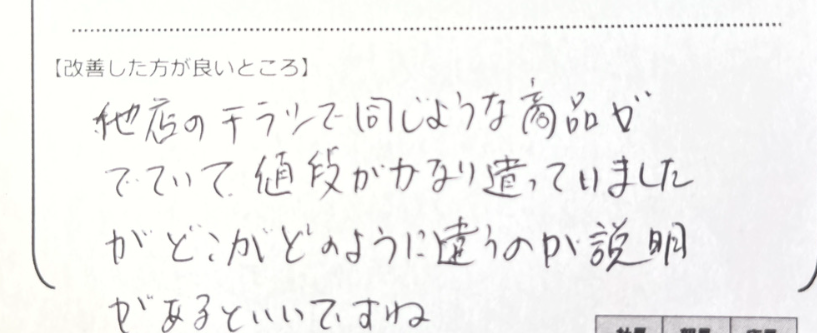 【改善した方が良いところ】
他店のチラシで同じような商品が
でていて値段がかなり違っていました
がどこがどのように違うのか説明
があるといいですね